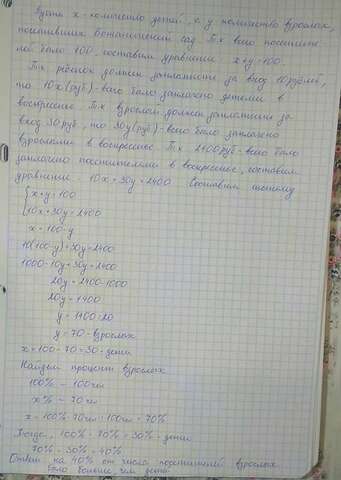 Пусть x - количество детей, а y количество взрослых,
посетивших ботанический сад. Т.к всего посетите-
лей было 100, составим уравнение x+y=100.
Т.к. ребёнок должен заплатить за вход 10 рублей,
то 10x (руб) - всего было заплачено детьми в
воскресенье. Т.к взрослый должен заплатить за
вход 30 руб, то 30y (руб) - всего было заплачено
взрослыми в воскресенье. Т.к. 2400 руб - всего было
заплачено посетителями в воскресенье, составим
уравнение: 10x+30y=2400. Составим систему
{x+y=100
{10x+30y=2400
x=100-y
10(100-y)+30y=2400
1000-10y+30y=2400
20y=2400-1000
20y=1400
y=1400:20
y=70 - взрослых
x=100-70=30 - дети
Найдём процент взрослых
100% - 100чел
x% - 70чел
x=100%·70чел:100чел=70%
Тогда, 100%-70%=30% - дети
70%-30%=40%
Ответ: на 40% от числа посетителей взрослых
было больше, чем детей